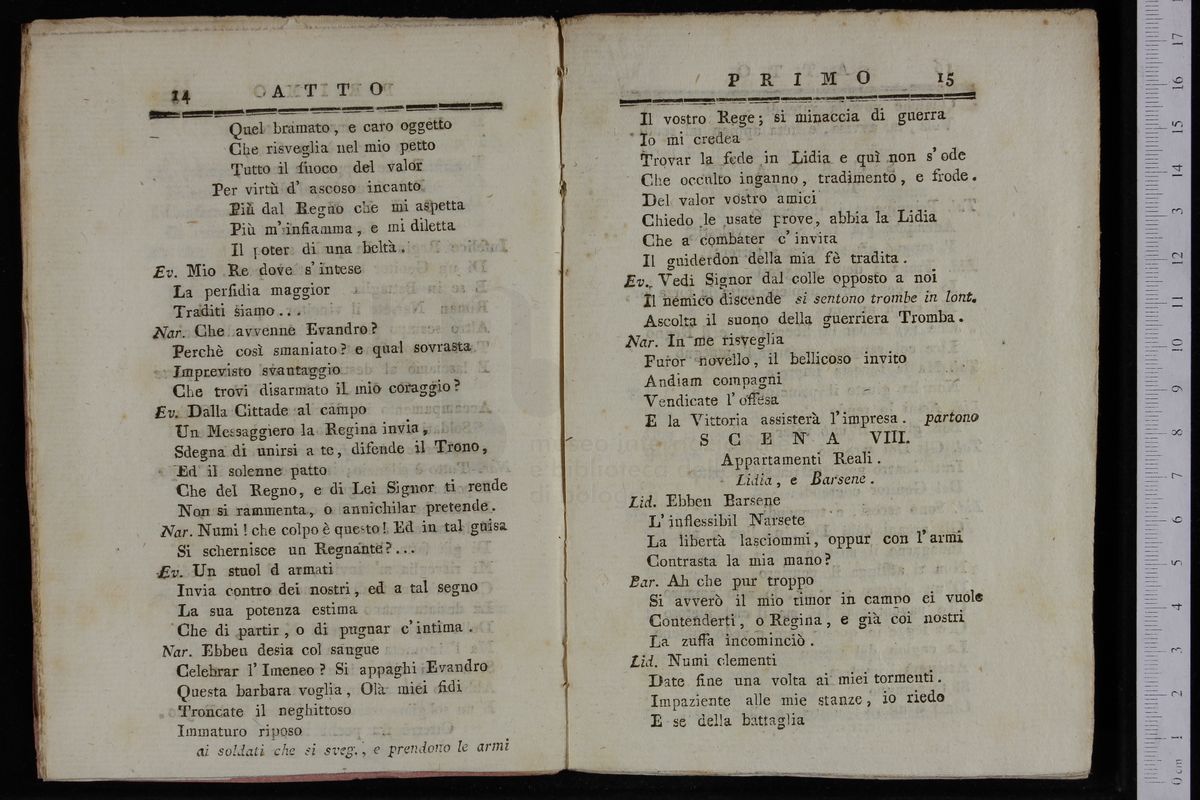 14 ATTO
Quel bramato, e caro oggetto
Che risveglia nel mio petto
Tutto il fuoco del valor
Per virtù d' ascoso incanto
Più dal Regno che mi aspetta
Più m' infiamma, e mi diletta
Il poter di una beltà.
Ev. Mio Re dove s' intese
La perfidia maggior
Traditi siamo...
Nar. Che avvenne Evandro?
Perchè così smaniato? e qual sovrasta
Imprevisto svantaggio
Che trovi disarmato il mio coraggio?
Ev. Dalla Cittade al campo
Un Messaggiero la Regina invia,
Sdegna di unirsi a te, difende il Trono,
Ed il solenne patto
Che del Regno, e di Lei Signor ti rende
Non si rammenta, o annichilar pretende.
Nar. Numi! che colpo è questo! Ed in tal guisa
Si schernisce un Regnante?...
Ev. Un stuol d armati
Invia contro dei nostri, ed a tal segno
La sua potenza estima
Che di partir, o di pugnar c' intima.
Nar. Ebben desia col sangue
Celebrar l' Imeneo? Si appaghi Evandro
Questa barbara voglia, Olà miei fidi
Troncate il neghittoso
Immaturo riposo
ai soldati che si sveg., e prendono le armi
PRIMO 15
Il vostro Rege; si minaccia di guerra
Io mi credea
Trovar la fede in Lidia e quì non s' ode
Che occulto inganno, tradimento, e frode.
Del valor vostro amici
Chiedo le usate prove, abbia la Lidia
Che a combater c' invita
Il guiderdon della mia fè tradita.
Ev. Vedi Signor dal colle opposto a noi
Il nemico discende si sentono trombe in lont.
Ascolta il suono della guerriera Tromba.
Nar. In me risveglia
Furor novello, il bellicoso invito
Andiam compagni
Vendicate l' offesa
E la Vittoria assisterà l' impresa. partono
SCENA VIII.
Appartamenti Reali.
Lidia, e Barsene.
Lid. Ebben Barsene
L' inflessibil Narsete
La libertà lasciommi, oppur con l' armi
Contrasta la mia mano?
Bar. Ah che pur troppo
Si avverò il mio timor in campo ei vuole
Contenderti, o Regina, e già coi nostri
La zuffa incominciò.
Lid. Numi clementi
Date fine una volta ai miei tormenti.
Impaziente alle mie stanze, io riedo
E se della battaglia